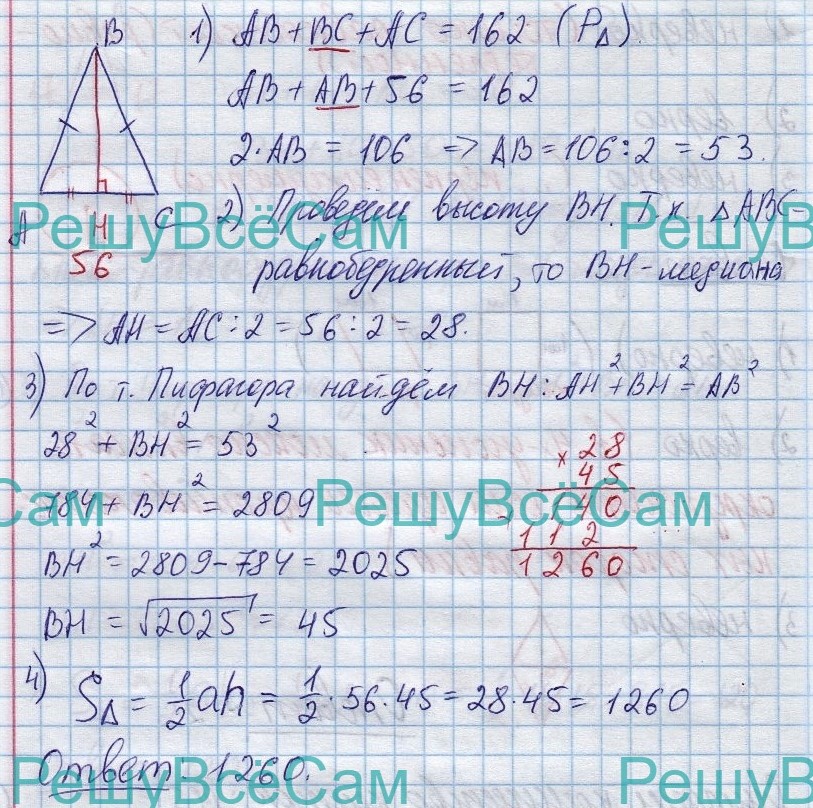 B
A
H
C
56
1) AB + BC + AC = 162 (P△).
AB + AB + 56 = 162
2·AB = 106 => AB = 106 : 2 = 53.
2) Проведём высоту BH. Т.к. △ABC -
равнобедренный, то BH - медиана
=> AH = AC : 2 = 56 : 2 = 28.
3) По т. Пифагора найдём BH: AH² + BH² = AB²
28² + BH² = 53²
784 + BH² = 2809
BH² = 2809 - 784 = 2025
BH = √2025 = 45
× 28
45
140
112
1260
4) S△ = 1/2 ah = 1/2 · 56 · 45 = 28 · 45 = 1260
Ответ: 1260.
РешуВсёСам
РешуВсё
Сам
РешуВсёСам
РешуВсёСам
РешуВсё